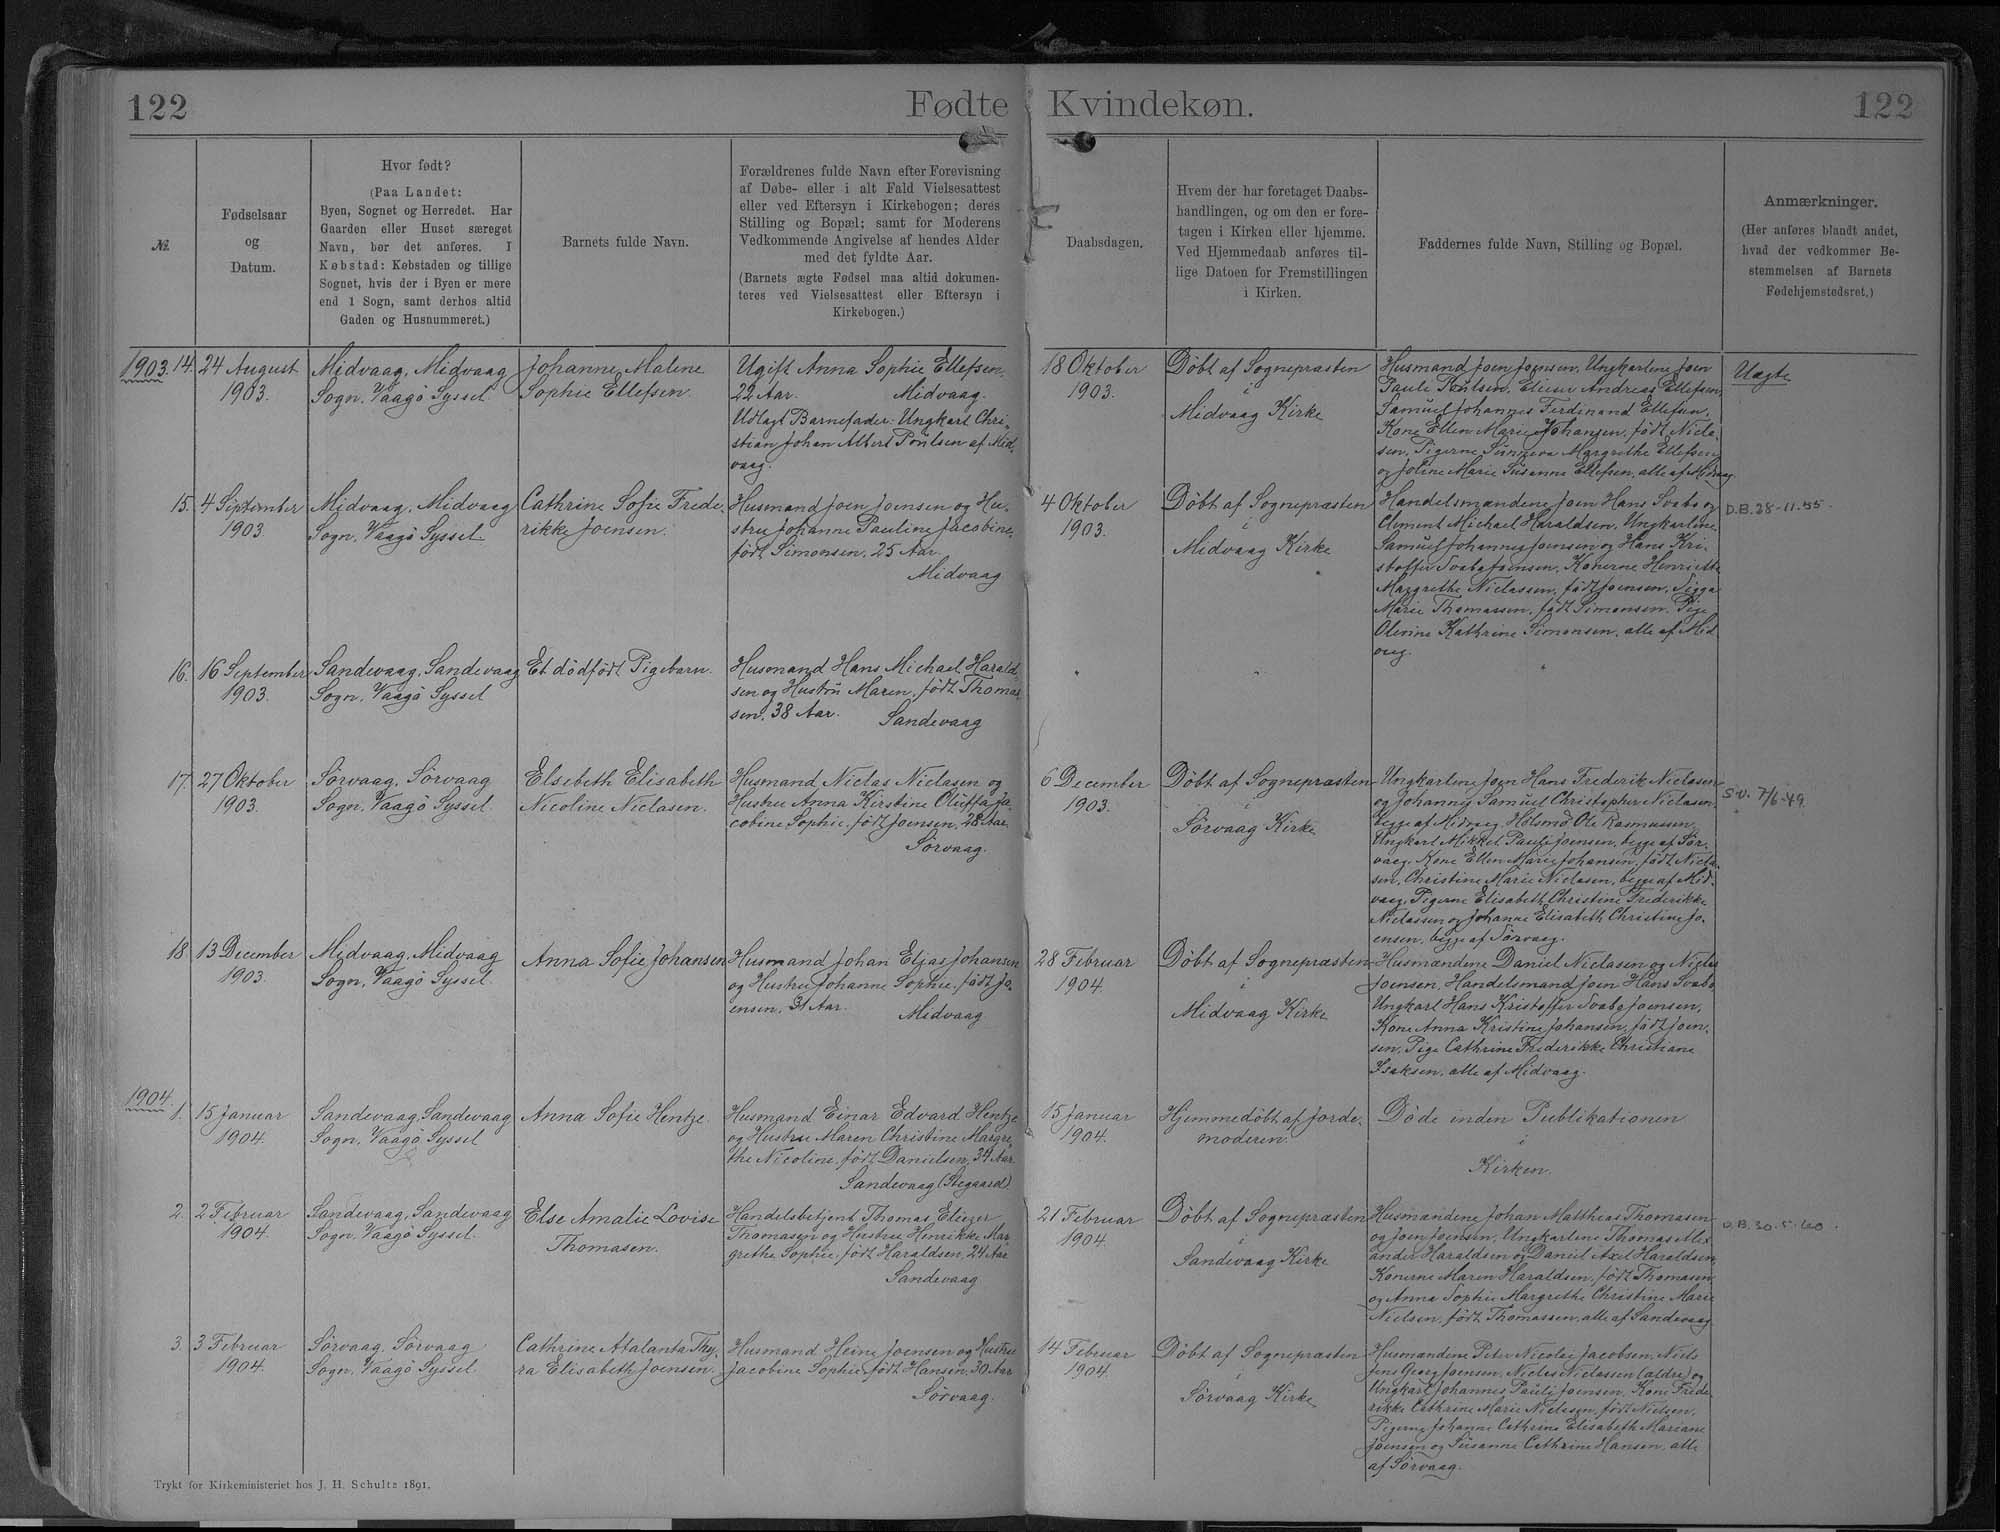 122
Fødte
Kvindekøn.
122
№.
Fødselsaar
og
Datum.
Hvor født?
(Paa Landet:
Byen, Sognet og Herredet. Har
Gaarden eller Huset særeget
Navn, bør det anføres. I
Købstad: Købstaden og tillige
Sognet, hvis der i Byen er mere
end 1 Sogn, samt derhos altid
Gaden og Husnummeret.)
Barnets fulde Navn.
Forældrenes fulde Navn efter Forevisning
af Døbe- eller i alt Fald Vielsesattest
eller ved Eftersyn i Kirkebogen; deres
Stilling og Bopæl; samt for Moderens
Vedkommende Angivelse af hendes Alder
med det fyldte Aar.
(Barnets ægte Fødsel maa altid dokumen-
teres ved Vielsesattest eller Eftersyn i
Kirkebogen.)
Daabsdagen.
Hvem der har foretaget Daabs-
handlingen, og om den er fore-
tagen i Kirken eller hjemme.
Ved Hjemmedaab anføres til-
lige Datoen for Fremstillingen
i Kirken.
Faddernes fulde Navn, Stilling og Bopæl.
Anmærkninger.
(Her anføres blandt andet,
hvad der vedkommer Be-
stemmelsen af Barnets
Fødehjemstedsret.)
1903. 14.
24 August
1903.
Midvaag, Midvaag
Sogn, Vaagö Syssel
Johanne Malene
Sophie Ellefsen
Ugift Anna Sophie Ellefsen,
22 Aar. Midvaag.
Udlagt Barnefader: Ungkarl Chri-
stian Johan Albert Poulsen af Mid-
vaag.
18 Oktober
1903.
Döbt af Sognepræsten
i
Midvaag Kirke
Husmand Joen Joensen, Ungkarlene Joen
Pauli Poulsen, Elieser Andreas Ellefsen,
Samuel Johannes Ferdinand Ellefsen,
Kone Ellen Marie Johansen, födt Nicla-
sen, Pigerne Sunneva Margrethe Ellefsen
og Joline Marie Susanne Ellefsen, alle af Midvaag
Uægte
15.
4 September
1903.
Midvaag, Midvaag
Sogn, Vaagö Syssel
Cathrine Sofie Frede-
rikke Joensen.
Husmand Joen Joensen og Hu-
stru Johanne Pauline Jacobine,
födt Simonsen, 25 Aar.
Midvaag
4 Oktober
1903.
Döbt af Sognepræsten
i
Midvaag Kirke
Handelsmændene Joen Hans Svabo og
Clement Michael Haraldsen, Ungkarlene
Samuel Johannes Joensen og Hans Kri-
stoffer Svabo Joensen, Konerne Henriette
Margrethe Niclassen, födt Joensen, Sigga
Marie Thomassen, födt Simonsen, Pige
Olevine Kathrine Simonsen, alle af Mid-
vaag.
D.B. 28-11-55.
16.
16 September
1903.
Sandevaag, Sandevaag
Sogn, Vaagö Syssel
Et dödfödt Pigebarn.
Husmand Hans Michael Harald-
sen og Hustru Maren, födt Thomas-
sen, 38 Aar. Sandevaag
17.
27 Oktober
1903.
Sörvaag, Sörvaag
Sogn, Vaagö Syssel.
Elsebeth Elisabeth
Nicoline Niclasen.
Husmand Niclas Niclasen og
Hustru Anna Kirstine Oluffa Ja-
cobine Sophie, födt Joensen, 28 Aar.
Sörvaag.
6 December
1903.
Döbt af Sognepræsten
i
Sörvaag Kirke
Ungkarlene Joen Hans Frederik Niclasen
og Johannes Samuel Christopher Niclasen,
begge af Midvaag, Husmd. Ole Rasmussen,
Ungkarl Mikkel Pauli Joensen, begge af Sör-
vaag, Kone Ellen Marie Johansen, födt Nicla-
sen, Christine Marie Niclasen, begge af Mid-
vaag, Pigerne Elisabeth Christine Frederikke
Niclassen og Johanne Elisabeth Christine Jo-
ensen, begge af Sörvaag.
S.V. 7/6-49
18.
13 December
1903.
Midvaag, Midvaag
Sogn, Vaagö Syssel.
Anna Sofie Johansen
Husmand Johan Elias Johansen
og Hustru Johanne Sophie, födt Jo-
ensen, 31 Aar. Midvaag
28 Februar
1904.
Döbt af Sognepræsten
i
Midvaag Kirke
Husmændene Daniel Niclasen og Niclas
Joensen, Handelsmand Joen Hans Svabo
Ungkarl Hans Kristoffer Svabo Joensen,
Kone Anna Kristine Johansen, födt Joen-
sen, Pige Cathrine Frederikke Christiane
Isaksen, alle af Midvaag.
1904. 1.
15 Januar
1904.
Sandevaag, Sandevaag
Sogn, Vaagö Syssel
Anna Sofie Hentze.
Husmand Einar Edvard Hentze
og Hustru Maren Christine Margre-
the Nicoline, födt Danielsen, 34 Aar
Sandevaag (Stegaard)
15 Januar
1904.
Hjemmedöbt af Jorde-
moderen.
Döde inden Publikationen
i
Kirken.
2.
2 Februar
1904.
Sandevaag, Sandevaag
Sogn, Vaagö Syssel.
Else Amalie Lovise
Thomasen.
Handelsbetjent Thomas Eliezer
Thomasen og Hustru Henrikke Mar-
grethe Sophie, födt Haraldsen, 24 Aar
Sandevaag
21 Februar
1904.
Döbt af Sognepræsten
i
Sandevaag Kirke
Husmændene Johan Matthias Thomasen
og Joen Joensen, Ungkarlene Thomas Alex-
ander Haraldsen og Daniel Axel Haraldsen,
Konerne Maren Haraldsen, födt Thomasen,
og Anna Sophie Margrethe Christine Marie
Nielsen, födt Thomassen, alle af Sandevaag
D.B. 30-5-60.
3.
3 Februar
1904.
Sörvaag, Sörvaag
Sogn, Vaagö Syssel
Cathrine Atalanta Thy-
ra Elisabeth Joensen.
Husmand Heine Joensen og Hustru
Jacobine Sophie, födt Hansen, 30 Aar
Sörvaag.
14 Februar
1904.
Döbt af Sognepræsten
i
Sörvaag Kirke
Husmændene Peter Nicolai Jacobsen, Niels
Jens Georg Joensen, Niclas Niclassen (ældre) og
Ungkarl Johannes Pauli Joensen, Kone Frede-
rikke Cathrine Marie Niclasen, födt Nielsen,
Pigerne Johanne Cathrine Elisabeth Mariane
Joensen og Susanne Cathrine Hansen, alle
af Sörvaag.
Trykt for Kirkeministeriet hos J. H. Schultz 1891.